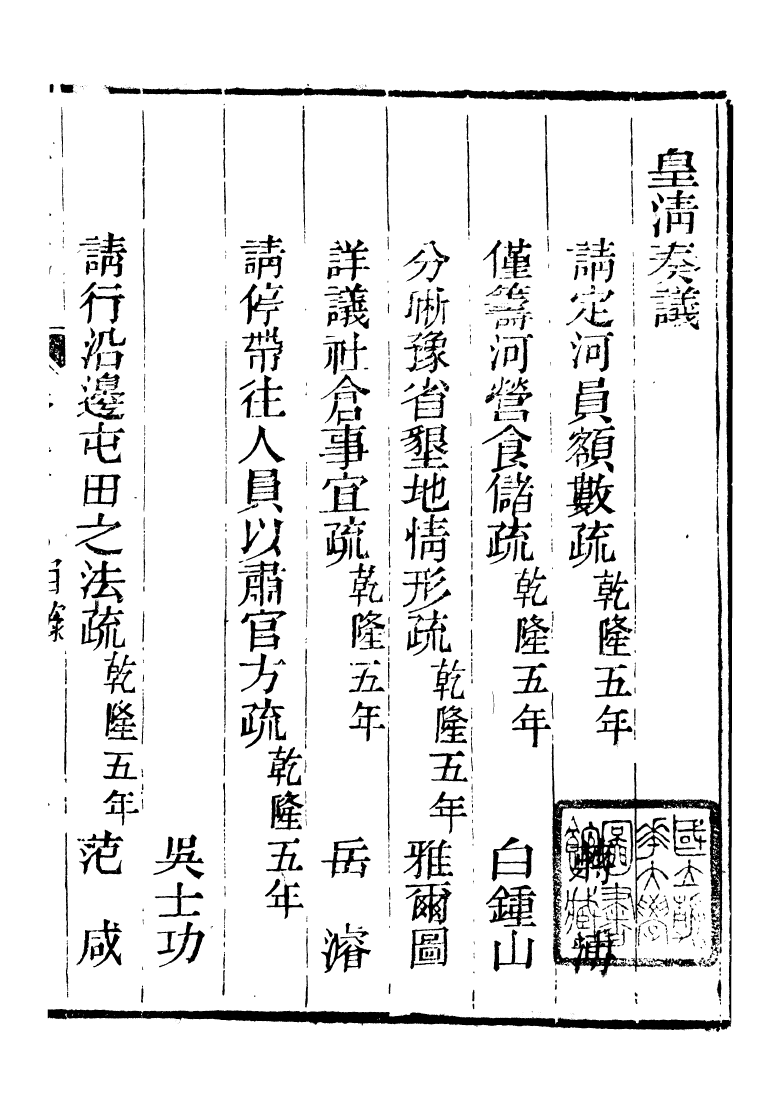 皇清奏議
請定河員額數疏 乾隆五年
僅籌河營食儲疏 乾隆五年 白鍾山
分晰豫省墾地情形疏 乾隆五年 雅爾圖
詳議社倉事宜疏 乾隆五年 岳濬
請停帶往人員以肅官方疏 乾隆五年
吳士功
請行沿邊屯田之法疏 乾隆五年 范咸
目錄
國立清
華大學
圖書
館藏